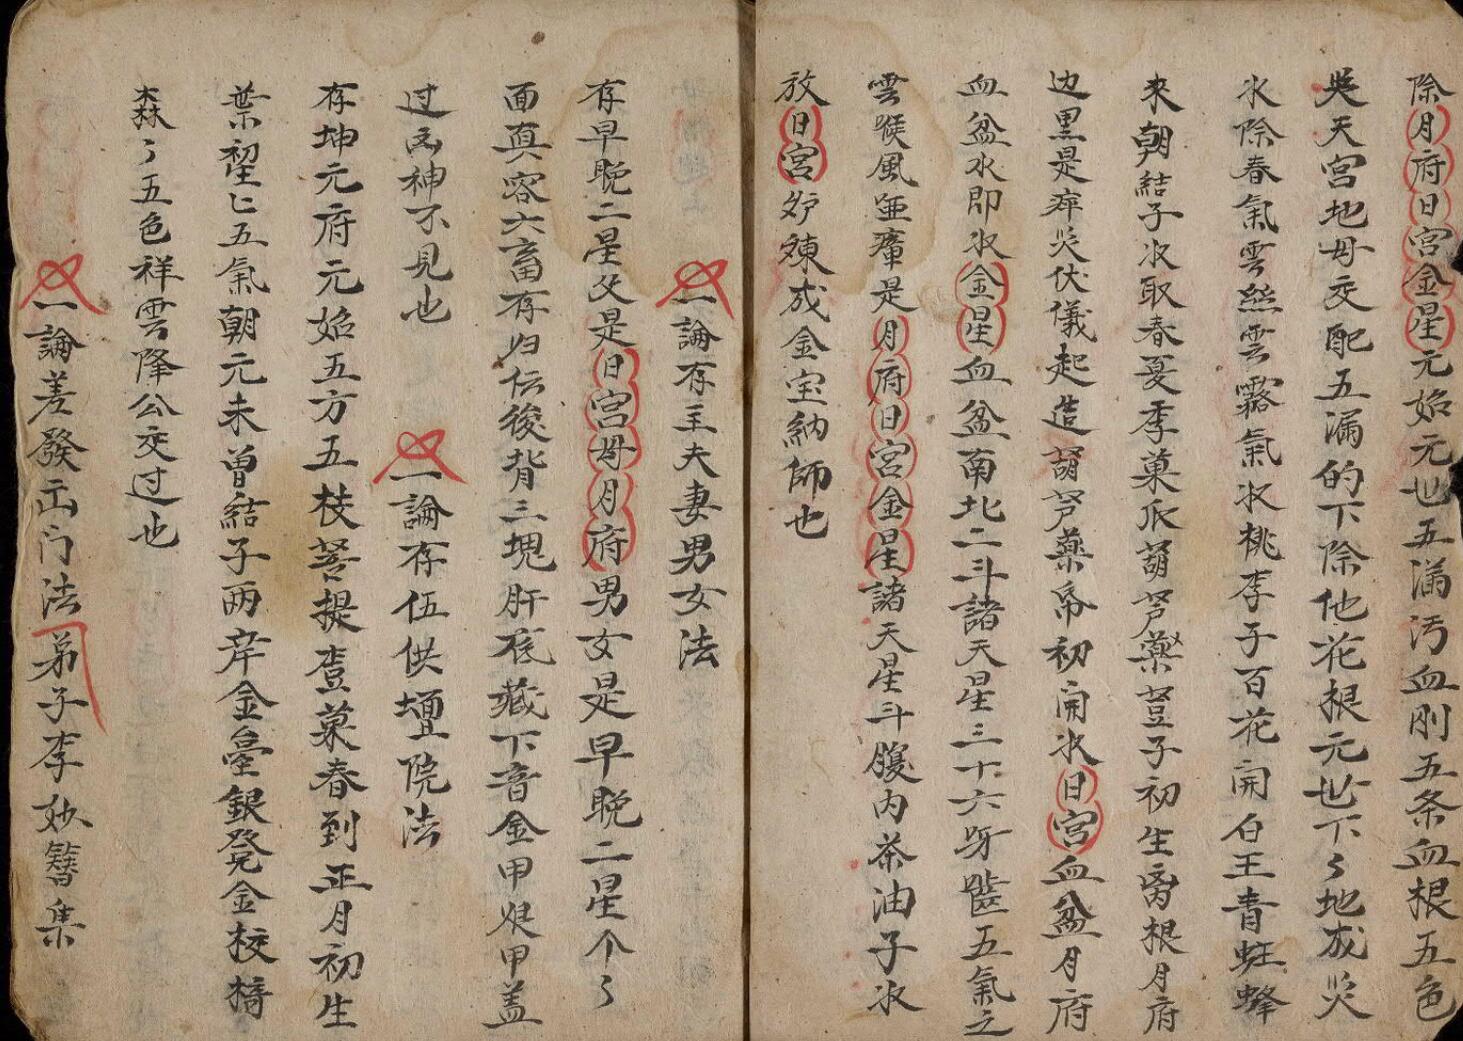 除月府日宮金星元始元世五漏污血刚五条血根五色
吳天宮地母交配五漏的下除他花根元世下々地成災
水除春氣雲丝雲霧氣氷桃李子百花開白王青蚨蜂
来朝結子氷取春夏季菓瓜葫芦藥荳子初生斋根月府
边黒是痺災伏儀起造葫芦藥帋初開氷日宮血盆月府
血盆水即氷金星血盆南北二斗諸天星三十六牙齒五氣之
雲喉風亜瘴是月府日宮金星諸天星斗腹内茶油子氷
放日宮炉煉成金宝納師也
一論存主夫妻男女法
存早晚二星父是日宮母月府男女是早晚二星个々
面真容六畜存归伝後背三塊肝底藏下音金甲艮甲盖
过凶神不見也
一論存伍供壇院法
存坤元府元始五方五枝菩提查菓春到正月初生
葉望匕五氣朝元未曾結子两岸金臺銀凳金校椅
森々五色祥雲降公交过也
一論差發出门法弟子李妙簪集